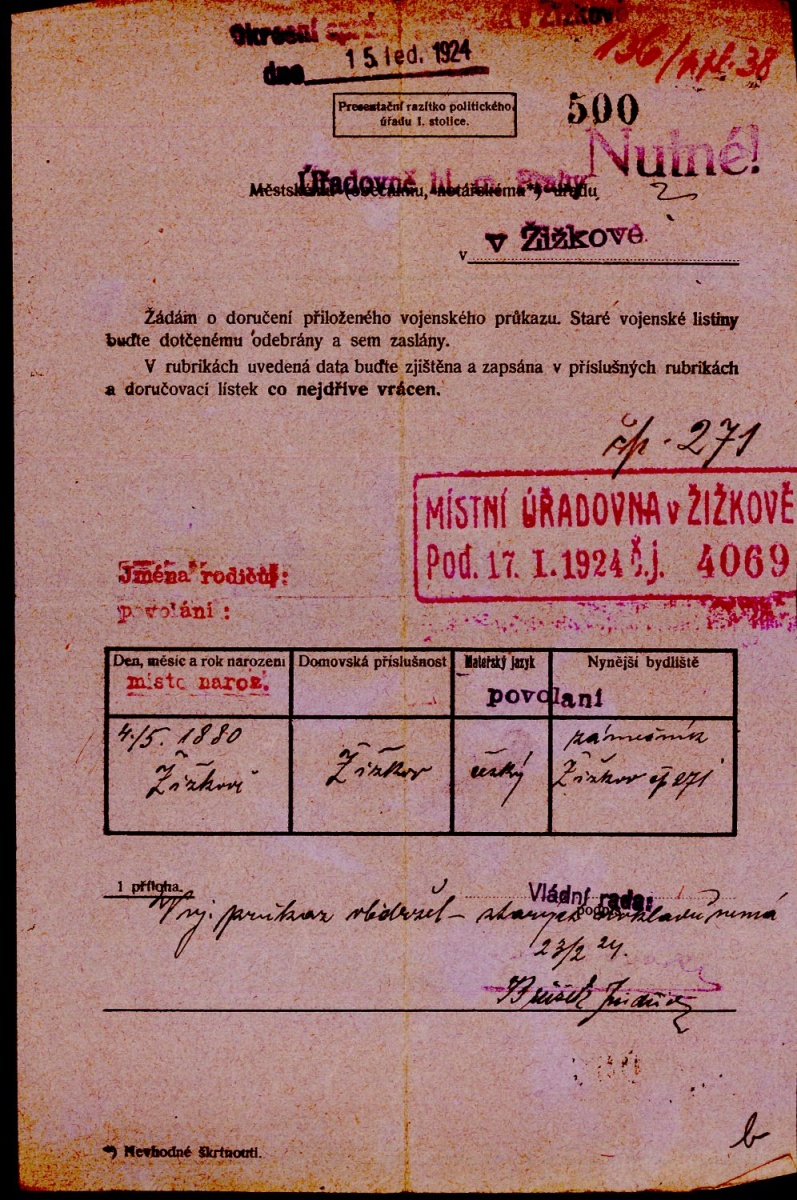 Okresní v Žižkově
136/ 38
dne 15. led. 1924
Presentační razítko politického
úřadu I. stolice.
500
Nutné!
Úřadovně hl. m. Prahy
Městskému (obecnímu, notářskému *) úřadu
v v Žižkově
Žádám o doručení přiloženého vojenského průkazu. Staré vojenské listiny
buďte dotčenému odebrány a sem zaslány.
V rubrikách uvedená data buďte zjištěna a zapsána v příslušných rubrikách
a doručovací lístek co nejdříve vrácen.
čp. 271
MÍSTNÍ ÚŘADOVNA v ŽIŽKOVĚ
Pod. 17. I. 1924 č.j. 4069
Jména rodičů:
povolání:
Den, měsíc a rok narození Domovská příslušnost Mateřský jazyk Nynější bydliště
místo naroz. povolaní
4./5. 1880 zámečník
Žižkov Žižkov český Žižkov čp 271
1 příloha.
Vládní rada:
Voj. průkaz obdržel – starých dokladů nemá
23/2 24.
*) Nevhodné škrtnouti.
b